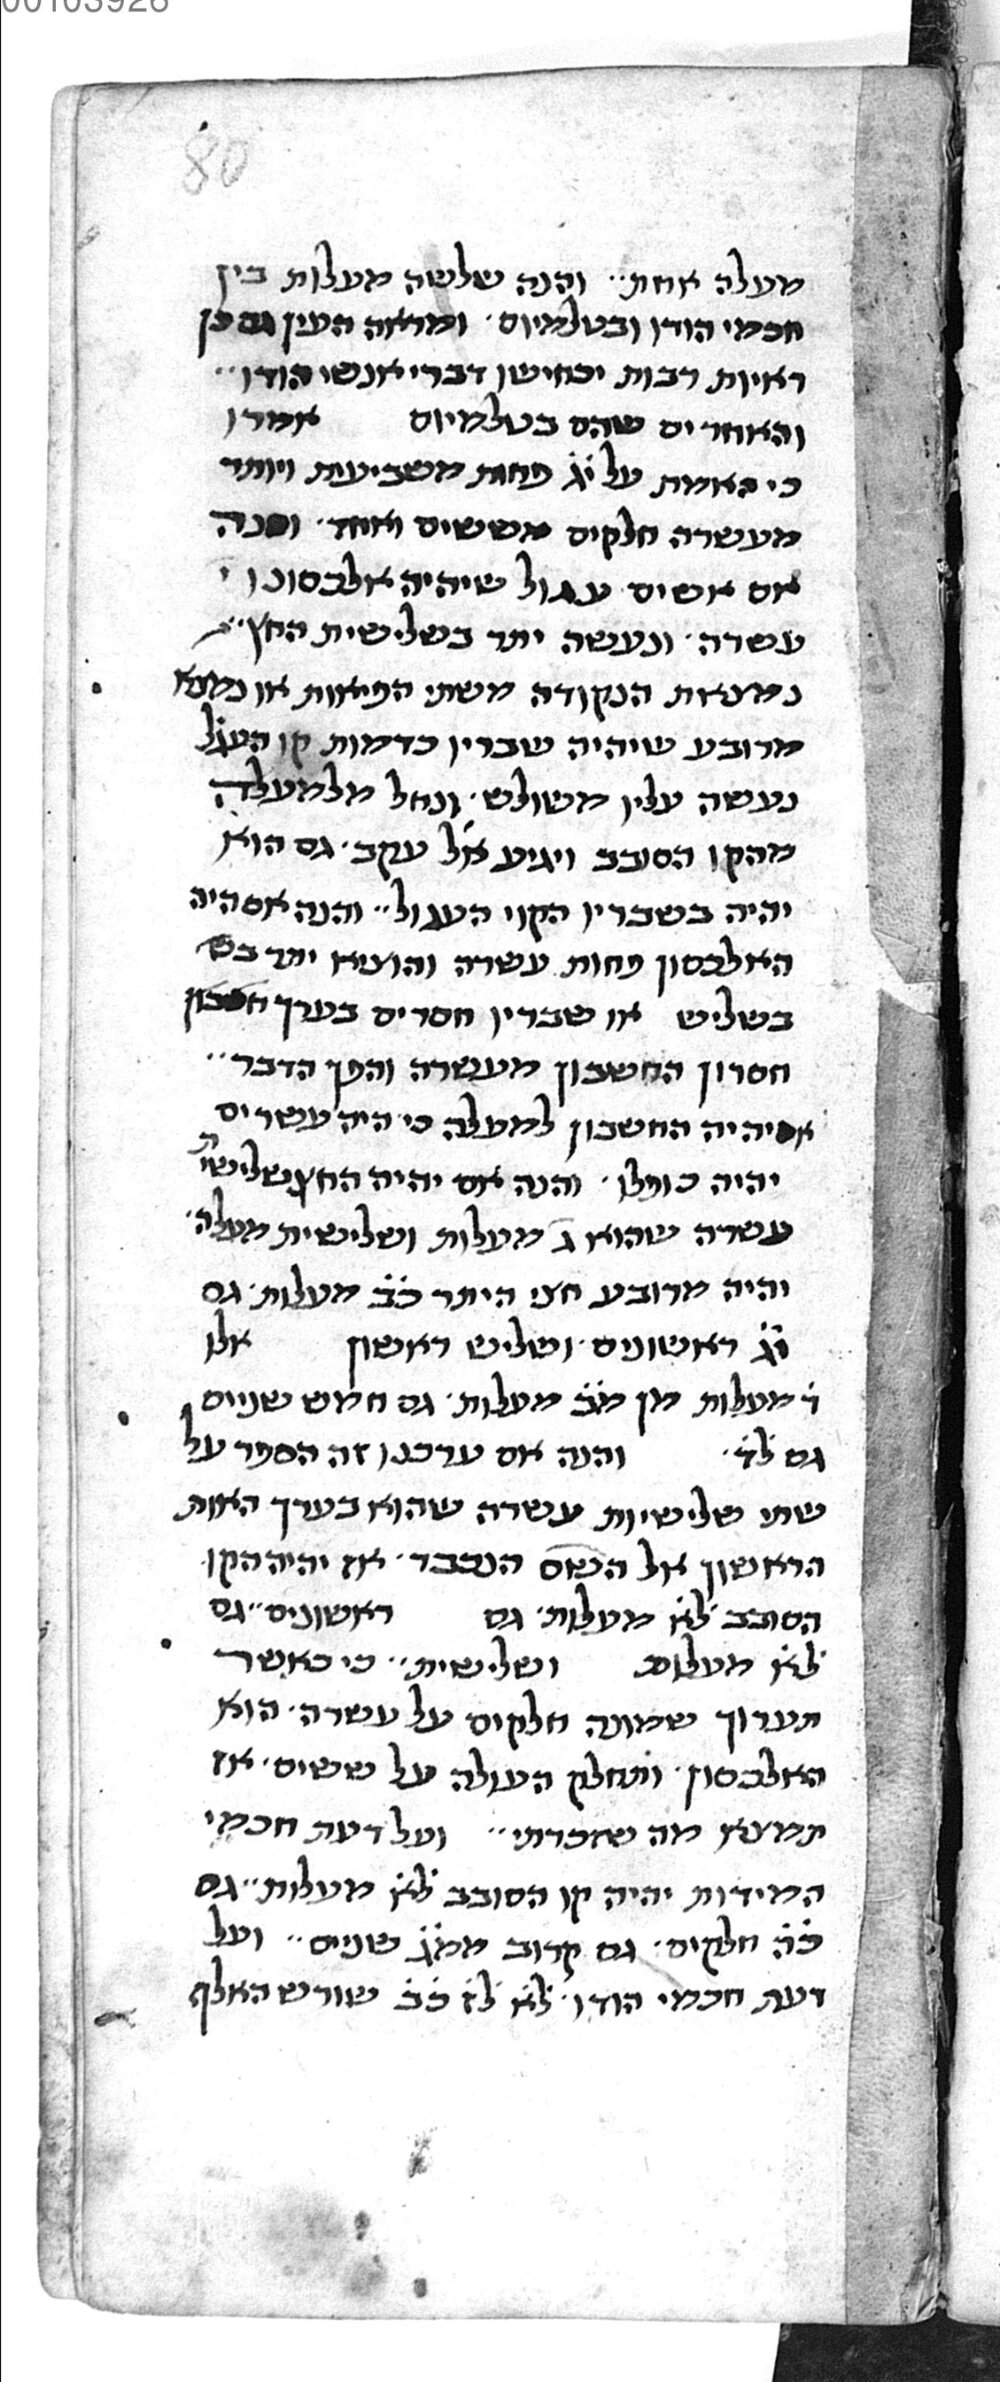 00103926
80
מעלה אחת·· והנה שלשה מעלות בין
חכמי הודו ובטלמיוס· ומראה העין גם כן
ראיות רבות יכחישו דברי אנשי הודו··
והאחרים שהם בטלמיוס אמרו
כי האמת על יג פחות משביעית ויותר
מעשרה חלקים מששים ואחד· והנה
אם אשים עגול שיהיה אלכסונו י
עשרה· ונעשה יתר בשלישית החץ··
נמצאת הנקודה משתי הפיאות או נמצא
מרובע שיהיה שבריו כדמות קו העגל
נעשה עליו משולש· ונחל מלמעלה
מהקו הסובב ויגיע אל עקב· גם הוא
יהיה בשבריו הקוי העגול·· והנה אם היה
האלכסון פחות עשרה והוציא יתר בש
בשליש או שבריו חסרים בערך חשבון
חסרון החשבון מעשרה והפך הדבר··
אם יהיה החשבון למעלה כי היה עשרים
יהיה כופלו· והנה אם יהיה החץ שלישית
עשרה שהוא ג מעלות ושלישית מעלה·
והיה מרובע חצי היתר כב מעלות· גם
יג ראשונים· ושליש ראשון אלו
ד מעלות מן מב מעלות· גם חמש שניים
גם לד· והנה אם ערכנו זה הספר על
שתי שלישיות עשרה שהוא בערך האות
הראשון אל השם הנכבד· אז יהיה הקו
הסובב לא מעלות· גם ראשונים·· גם
לא מעלות ושלישית·· כי כאשר
תערוך שמונה חלקים על עשרה· הוא
האלכסון· ותחלק העולה על ששים· אז
תמצא מה שהזכרתי·· ועל דעת חכמי
המידות יהיה קו הסובב לא מעלות·· גם
כה חלקים· גם קרוב ממג שניים·· ועל
דעת חכמי הודו· לא לז כב שורש האלף